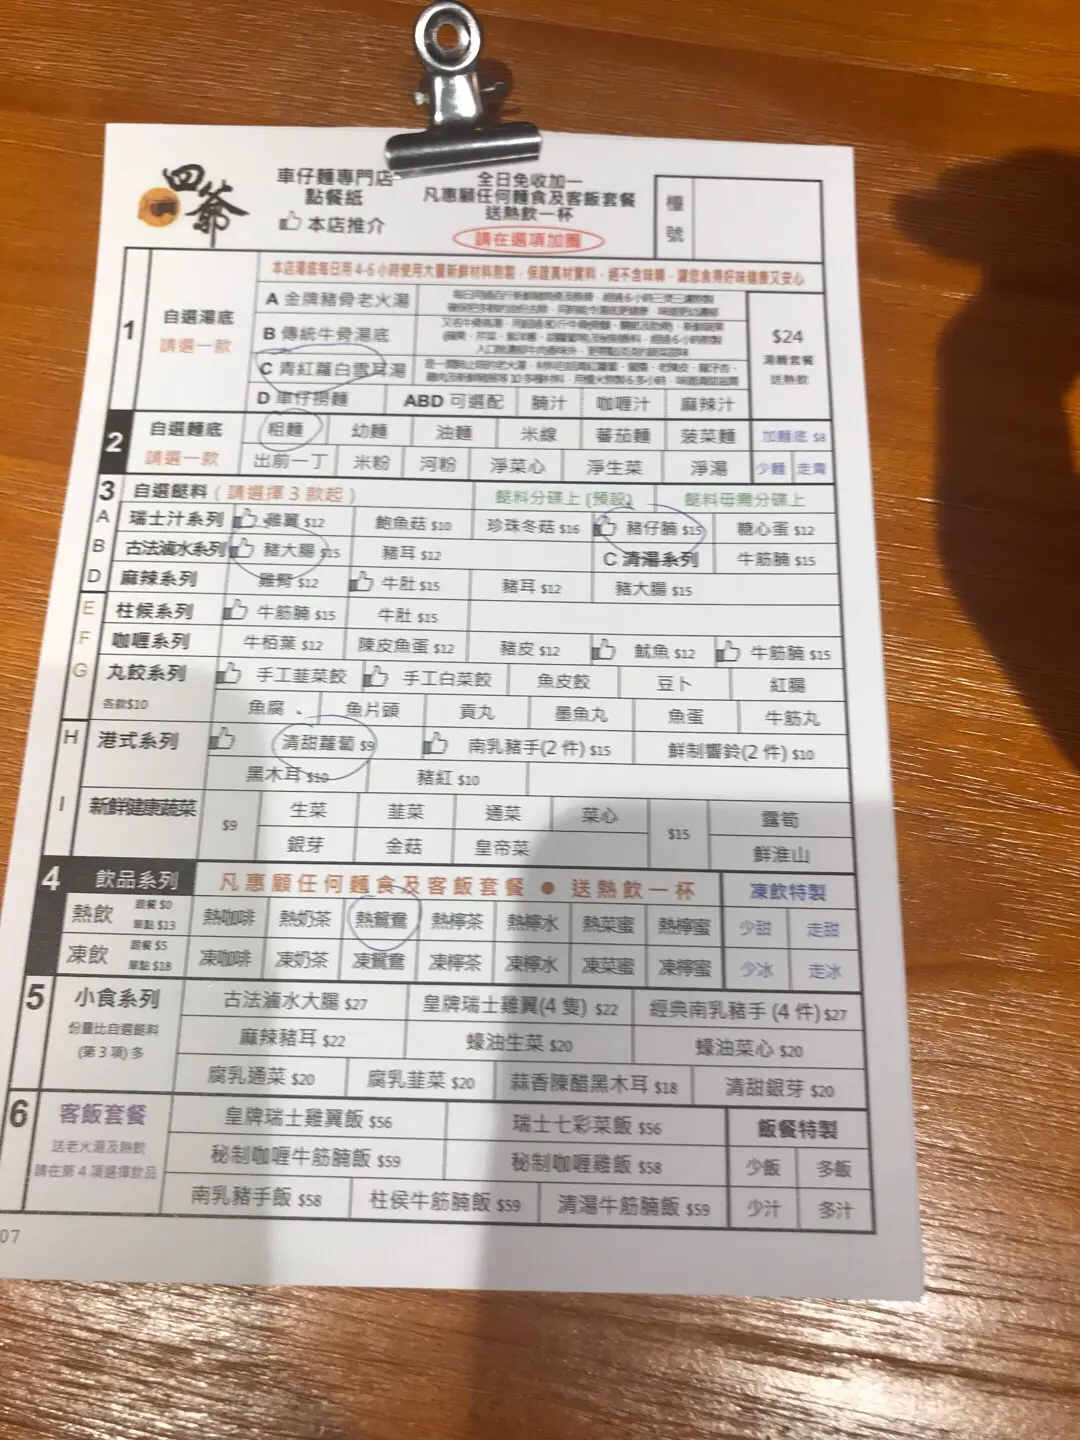 四爺
車仔麵專門店
點餐紙
本店推介
全日免收加一
凡惠顧任何麵食及客飯套餐
送熱飲一杯
請在選項加圈
檯號
1 自選湯底
請選一款
本店湯底每日用4-6小時使用大量新鮮材料熬製，保證真材實料，絕不含味精，讓您食得好味健康又安心
A 金牌豬骨老火湯
B 傳統牛骨湯底
C 青紅蘿白雪耳湯
D 車仔撈麵 ABD 可選配 腩汁 咖喱汁 麻辣汁
$24
湯麵套餐
送熱飲
2 自選麵底
請選一款
粗麵 幼麵 油麵 米線 蕃茄麵 菠菜麵 加麵底 $8
出前一丁 米粉 河粉 淨菜心 淨生菜 淨湯 少麵 走青
3 自選餸料（請選擇3款起） 餸料分碟上(預設) 餸料毋需分碟上
A 瑞士汁系列 雞翼 $12 鮑魚菇 $10 珍珠冬菇 $16 豬仔腩 $15 糖心蛋 $12
B 古法滷水系列 豬大腸 $15 豬耳 $12 C 清湯系列 牛筋腩 $15
D 麻辣系列 雞腎 $12 牛肚 $15 豬耳 $12 豬大腸 $15
E 柱候系列 牛筋腩 $15 牛肚 $15
F 咖喱系列 牛栢葉 $12 陳皮魚蛋 $12 豬皮 $12 魷魚 $12 牛筋腩 $15
G 丸餃系列 手工韮菜餃 手工白菜餃 魚皮餃 豆卜 紅腸
各款$10 魚腐 、 魚片頭 貢丸 墨魚丸 魚蛋 牛筋丸
H 港式系列 清甜蘿蔔 $9 南乳豬手(2件) $15 鮮制響鈴(2件) $10
黑木耳 $10 豬紅 $10
I 新鮮健康蔬菜 $9 生菜 韮菜 通菜 菜心 $15 露筍
銀芽 金菇 皇帝菜 鮮淮山
4 飲品系列 凡惠顧任何麵食及客飯套餐 ● 送熱飲一杯 凍飲特製
熱飲 跟餐 $0 單點 $13 熱咖啡 熱奶茶 熱鴛鴦 熱檸茶 熱檸水 熱菜蜜 熱檸蜜 少甜 走甜
凍飲 跟餐 $5 單點 $18 凍咖啡 凍奶茶 凍鴛鴦 凍檸茶 凍檸水 凍菜蜜 凍檸蜜 少冰 走冰
5 小食系列 古法滷水大腸 $27 皇牌瑞士雞翼(4隻) $22 經典南乳豬手 (4件) $27
份量比自選餸料
(第3項)多
麻辣豬耳 $22 蠔油生菜 $20 蠔油菜心 $20
腐乳通菜 $20 腐乳韮菜 $20 蒜香陳醋黑木耳 $18 清甜銀芽 $20
6 客飯套餐 皇牌瑞士雞翼飯 $56 瑞士七彩菜飯 $56 飯餐特製
送老火湯及熱飲
請在第4項選擇飲品
秘制咖喱牛筋腩飯 $59 秘制咖喱雞飯 $58 少飯 多飯
南乳豬手飯 $58 柱侯牛筋腩飯 $59 清湯牛筋腩飯 $59 少汁 多汁
07